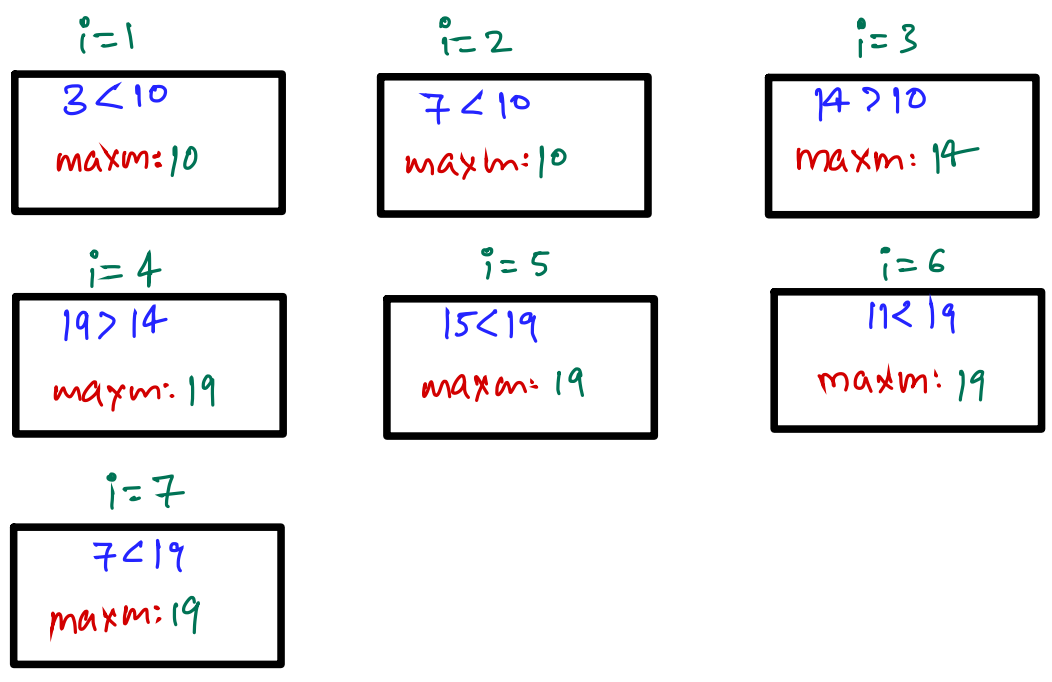 i=1
3<10
maxm:10
i=2
7<10
maxm:10
i=3
14>10
maxm: 14
i=4
19>14
maxm: 19
i=5
15<19
maxm: 19
i=6
11<19
maxm: 19
i=7
7<19
maxm: 19